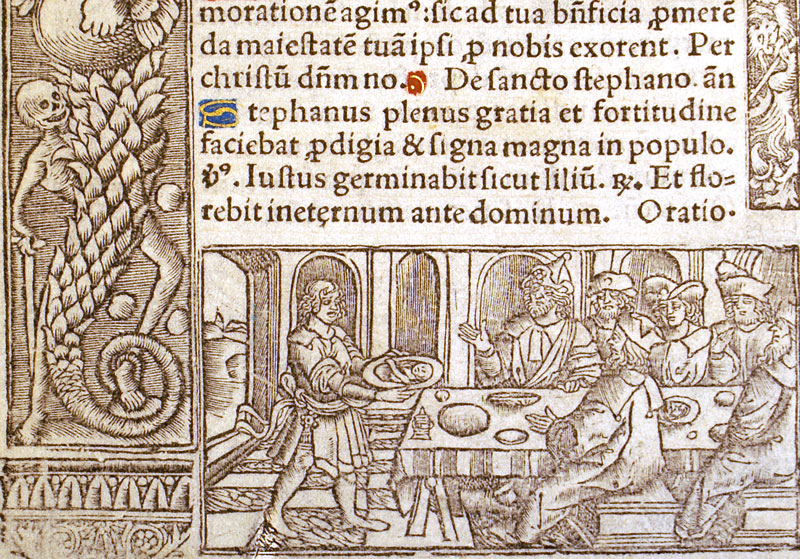 morationē agimꝰ: sic ad tua bn̄ficia ꝓmerē
da maiestatē tuā ipsi ꝓ nobis exorent. Per
christū dn̄m no. De sancto stephano. an̄
Stephanus plenus gratia et fortitudine
faciebat ꝓdigia & signa magna in populo.
ꝟꝰ. Iustus germinabit sicut liliū. ℞. Et flo=
rebit in eternum ante dominum. Oratio.